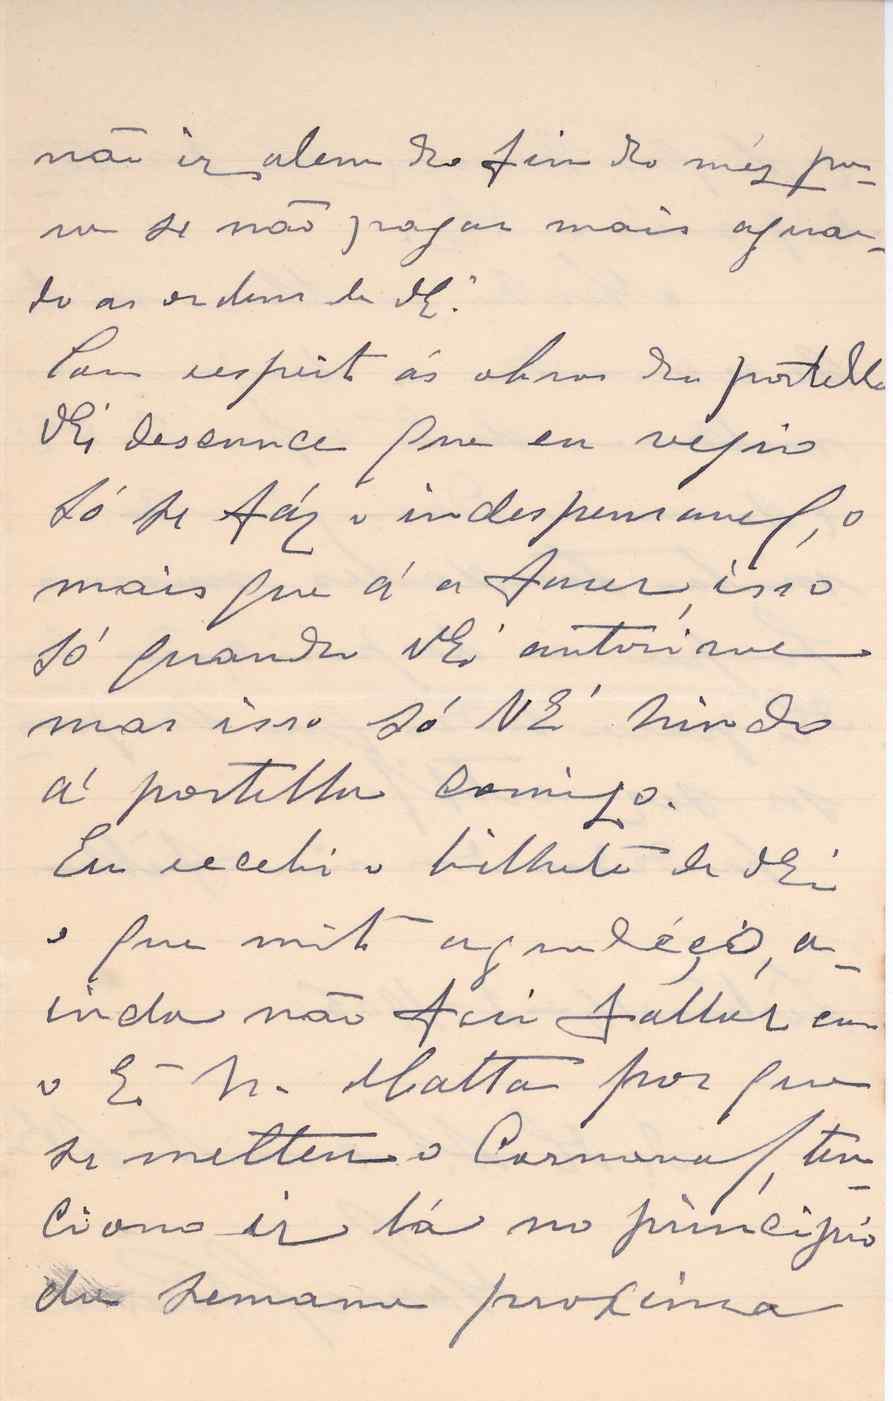 não ir alem do fim do méz pa-
ra se não pagar mais aguar-
do as ordens de VEª.
Com respeito ás obras da portella
VEª descance que eu vegio
só se fáz o indespensavel, o
mais que á a fazer, isso
só quando VEª autorisar
mas isso só VEª hindo
á portella comigo.
Eu recebi o bilhete de VEª
o que mito agradéço, a-
inda não fui fallar com
o E. Sr. Matta por que
se metteu o Carnaval, ten-
ciono ir lá no principio
da semana proxima